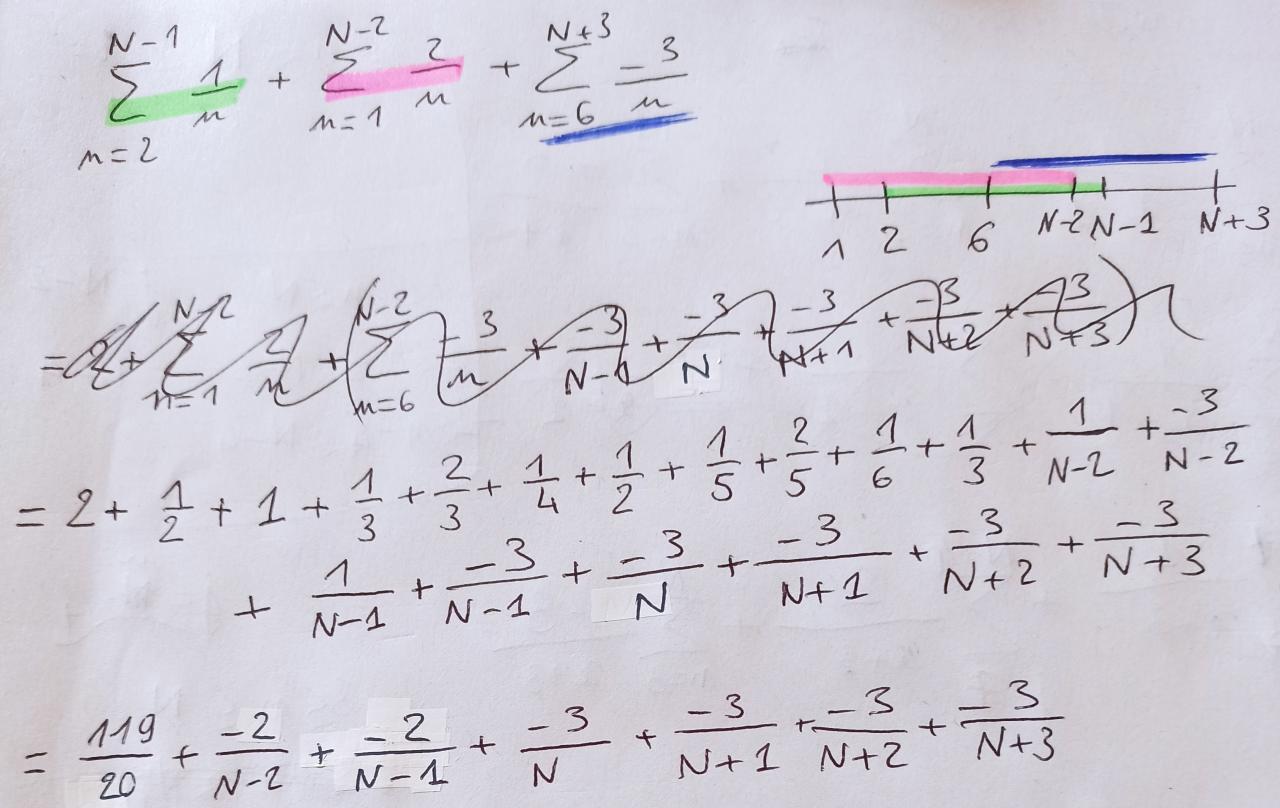 \sum_{n=2}^{N-1} \frac{1}{n} + \sum_{n=1}^{N-2} \frac{2}{n} + \sum_{n=6}^{N+3} \frac{-3}{n}
1 2 6 N-2 N-1 N+3
= 2 + \sum_{n=1}^{N-2} \frac{2}{n} + \left( \sum_{n=6}^{N-2} \frac{-3}{n} + \frac{-3}{N-1} + \frac{-3}{N} + \frac{-3}{N+1} + \frac{-3}{N+2} + \frac{-3}{N+3} \right)
= 2 + \frac{1}{2} + 1 + \frac{1}{3} + \frac{2}{3} + \frac{1}{4} + \frac{1}{2} + \frac{1}{5} + \frac{2}{5} + \frac{1}{6} + \frac{1}{3} + \frac{1}{N-2} + \frac{-3}{N-2}
+ \frac{1}{N-1} + \frac{-3}{N-1} + \frac{-3}{N} + \frac{-3}{N+1} + \frac{-3}{N+2} + \frac{-3}{N+3}
= \frac{119}{20} + \frac{-2}{N-2} + \frac{-2}{N-1} + \frac{-3}{N} + \frac{-3}{N+1} + \frac{-3}{N+2} + \frac{-3}{N+3}